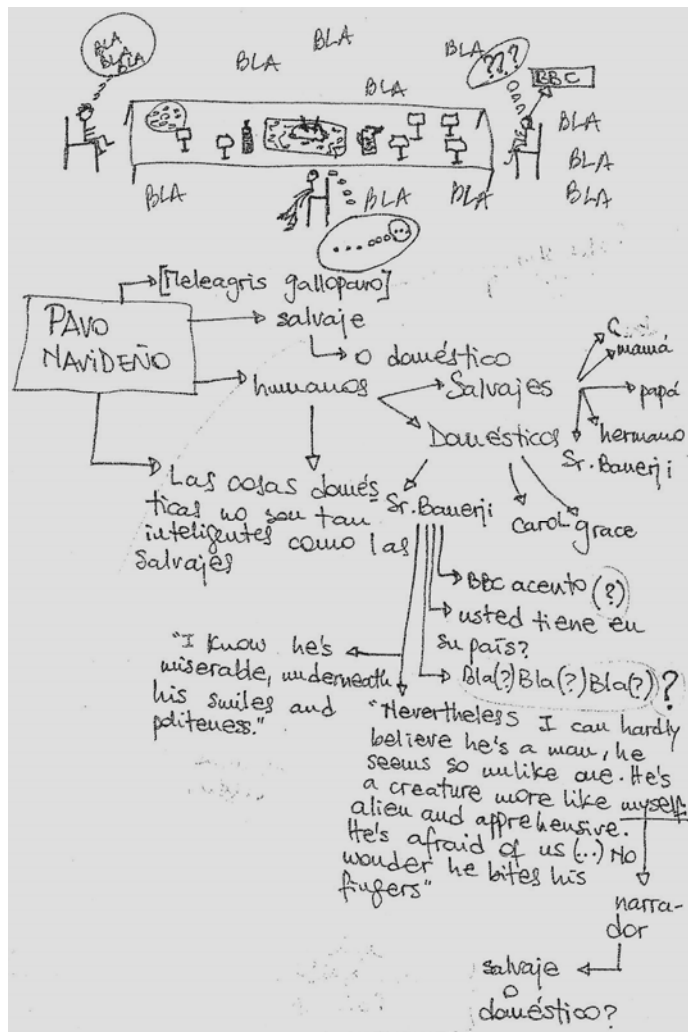 BLA
BLA
BLA
BLA
BLA
BLA
BLA
BLA
???
BBC
BLA
BLA
BLA
BLA
BLA
BLA
BLA
[Meleagris gallopavo]
PAVO
NAVIDEÑO
salvaje
o doméstico
humanos
Salvajes
mamá
papá
hermano
Sr. Banerji
Domésticos
Las cosas domés
ticas no son tan
inteligentes como las
salvajes
Sr. Banerji
Carol
grace
BBC acento (?)
usted tiene en
su país?
Bla(?) Bla(?) Bla(?) ?
"I know he's
miserable, underneath
his smiles and
politeness."
"Nevertheless I can hardly
believe he's a man, he
seems so unlike one. He's
a creature more like myself:
alien and apprehensive.
He's afraid of us (...) No
wonder he bites his
fingers"
narra-
dor
salvaje
o
doméstico?